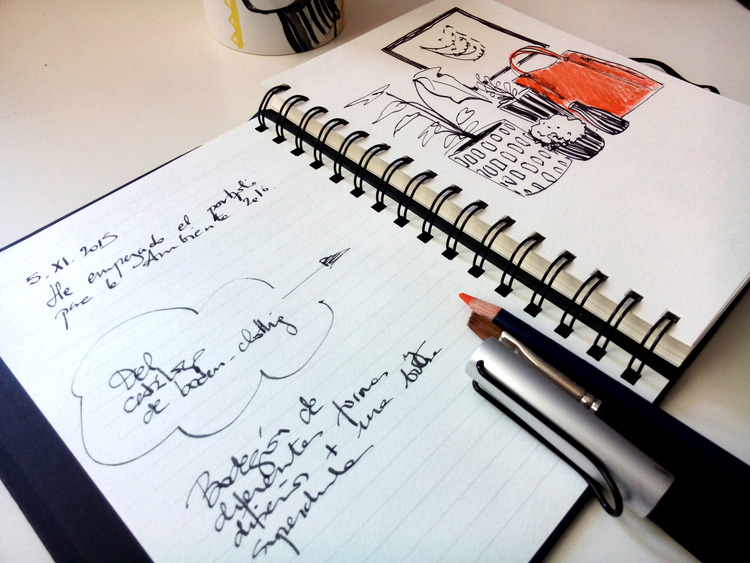 5. XI. 2015
He empezado el
para la Ambiente 2016
Del
catálogo
de boden-clothing
Bodegón de
diferentes formas
diseño + una
superchula